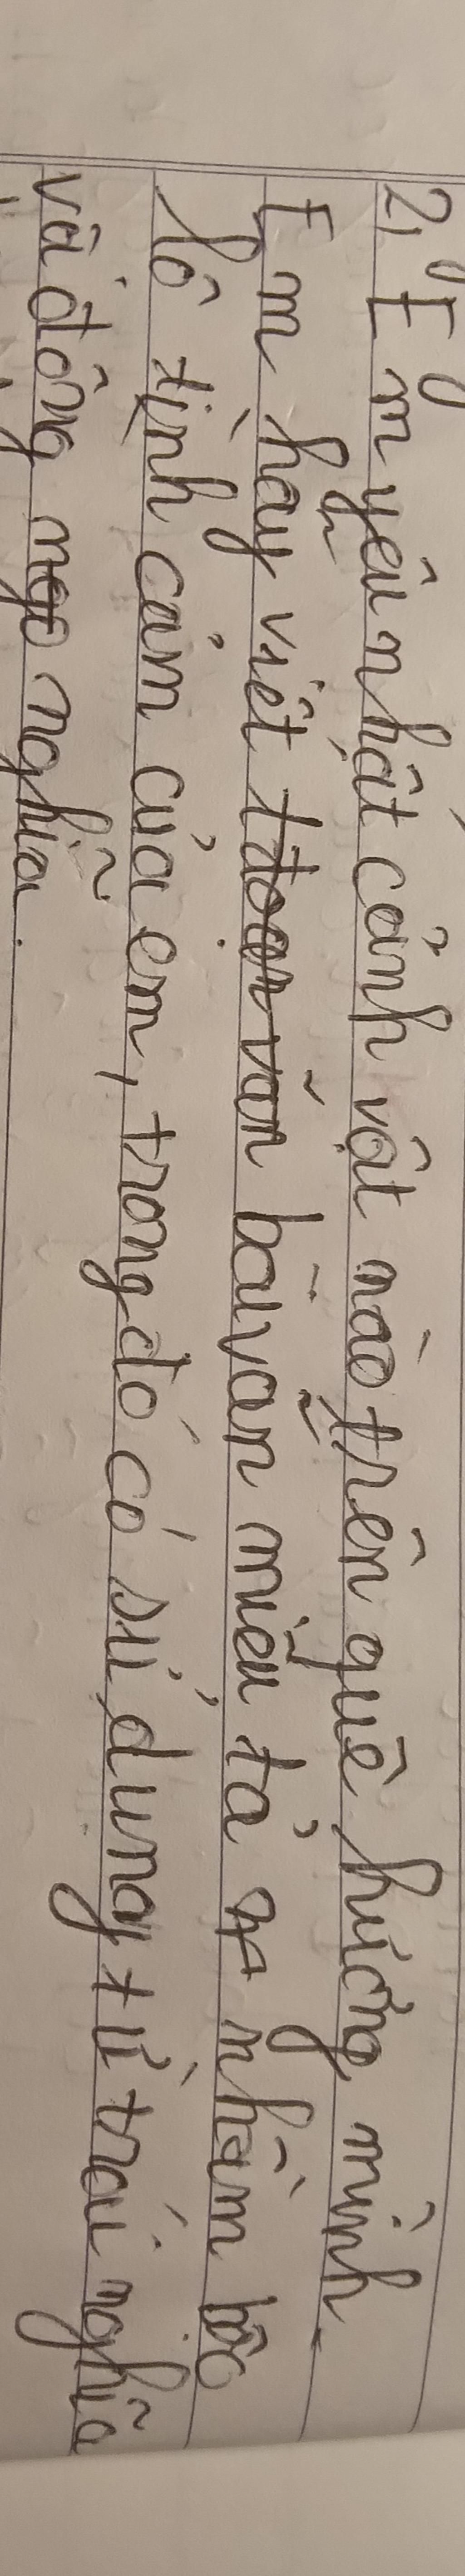 2, Em yêu nhất cảnh vật nào trên quê hương mình.
Em hãy viết bài văn miêu tả nhằm bộc
lộ tình cảm của em, trong đó có sử dụng từ trái nghĩa
và đồng nghĩa.